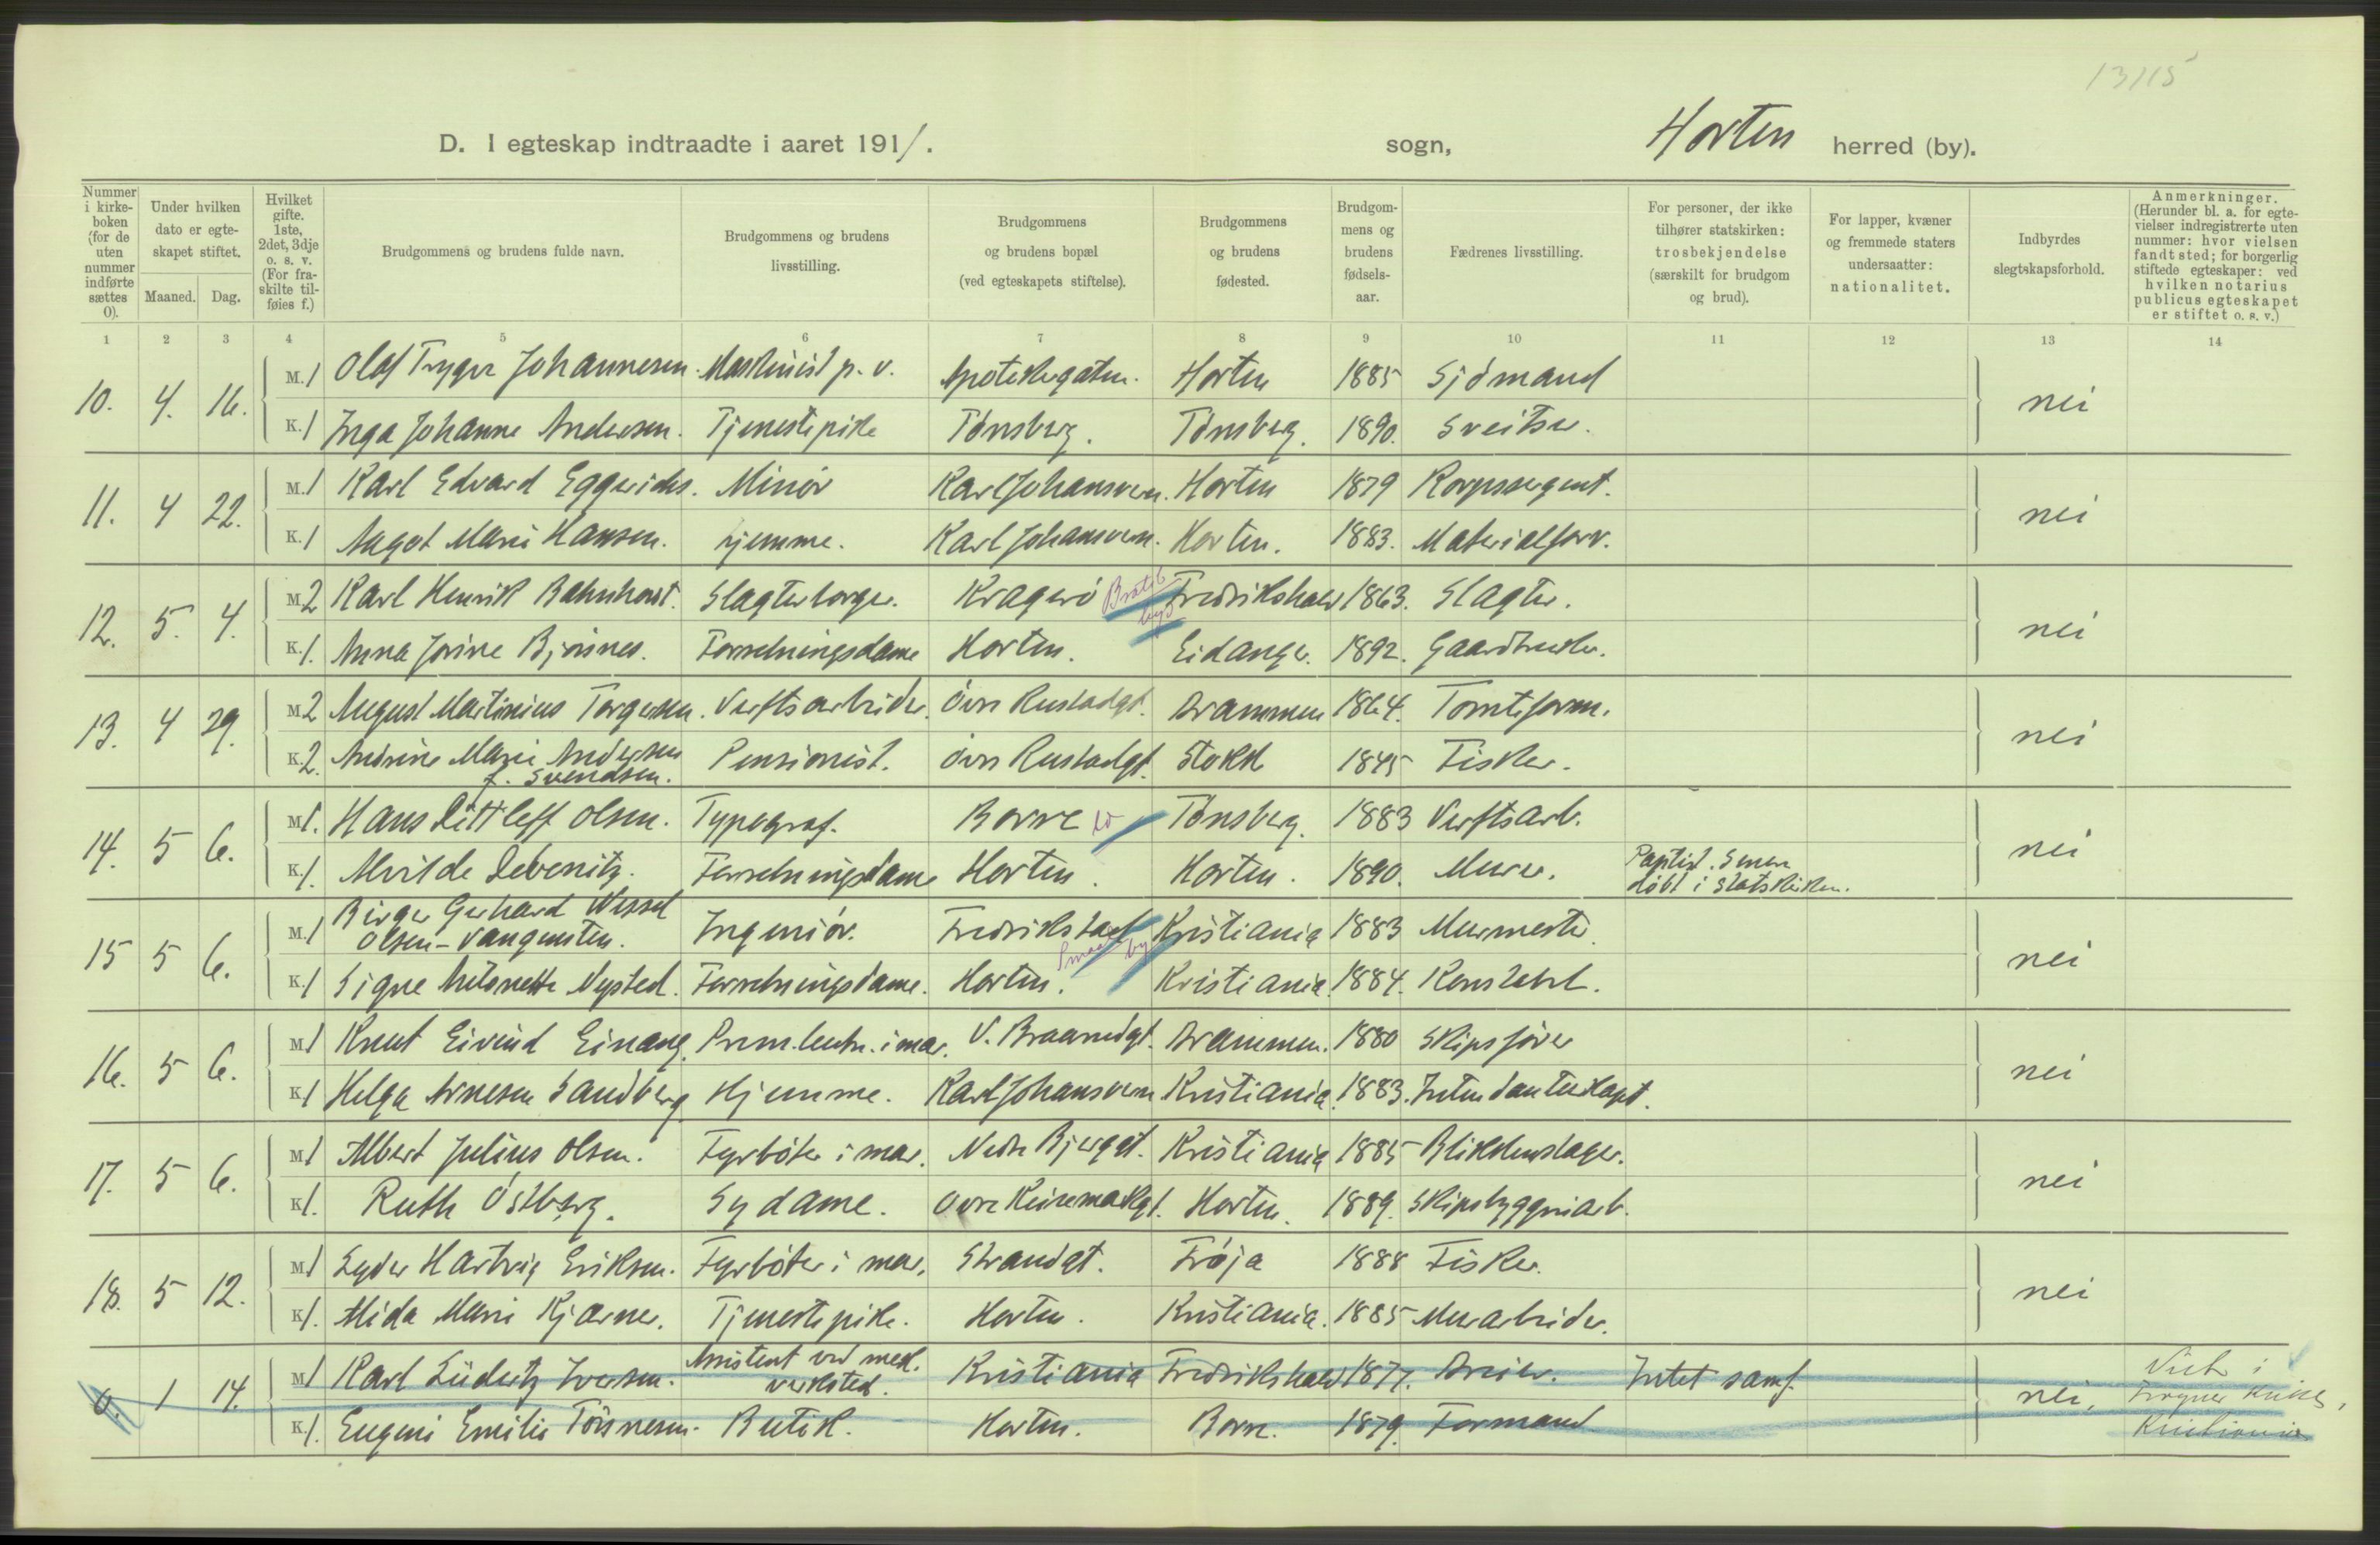 13115
D. I egteskap indtraadte i aaret 1911. sogn, Horten herred (by).
Nummer i kirkeboken (for de uten nummer indførte sættes 0).
Under hvilken dato er egteskapet stiftet.
Maaned. Dag.
Hvilket gifte. 1ste, 2det, 3dje o. s. v. (For fraskilte tilføies f.)
Brudgommens og brudens fulde navn.
Brudgommens og brudens livsstilling.
Brudgommens og brudens bopæl (ved egteskapets stiftelse).
Brudgommens og brudens fødested.
Brudgommens og brudens fødselsaar.
Fædrenes livsstilling.
For personer, der ikke tilhører statskirken: trosbekjendelse (særskilt for brudgom og brud).
For lapper, kvæner og fremmede staters undersaatter: nationalitet.
Indbyrdes slegtskapsforhold.
Anmerkninger. (Herunder bl. a. for egtevielser indregistrerte uten nummer: hvor vielsen fandt sted; for borgerlig stiftede egteskaper: ved hvilken notarius publicus egteskapet er stiftet o. s. v.)
1 2 3 4 5 6 7 8 9 10 11 12 13 14
10. 4. 16. M. 1 Olaf Trygve Johannesen. Maskinist p. v. Apotekergaten. Horten 1885 Sjömand nei
K. 1 Inga Johanne Andersen. Tjenestepike Tönsberg. Tönsberg. 1890. Sveitser.
11. 4 22. M. 1 Karl Edvard Eggerichs. Minör Karljohansvern. Horten 1879 Korpssergent. nei
K. 1 Aagot Marie Hansen. hjemme. Karljohansvern. Horten. 1883. Materialforv.
12. 5. 4. M. 2 Karl Henrik Slagterborger. Kragerö Bratsb. byd Fredrikshald 1863. Slagter. nei
K. 1. Anna Jorine Bjørsnes. Forretningsdame Horten. Eidanger. 1892. Gaardbruker.
13. 4 29. M. 2 August Martinius Torgersen. Verftsarbeider. övre Rustadgt. Drammen 1864. Tomteform. nei
K. 2. Andrine Marie Andersen f. Svendsen. Pensionist. övre Rustadgt. Stokke 1845 Fisker.
14. 5 6. M. 1. Hans Ditleff Olsen. Typograf. Borre Tönsberg. 1883 Verftsarb. nei
K. 1. Alvilde Forretningsdame Horten. Horten. 1890. Murer. Baptist. Senere döbt i Statskirken.
15 5 6. M. 1 Birger Gerhard Wessel Olsen-Vangensten. Ingeniör. Fredrikstad Smaal. by Kristiania 1883 Murmester. nei
K. 1 Signe Antonette Nysted. Forretningsdame. Horten. Kristiania. 1884. Konstabel.
16. 5 6. M. 1 Knut Eivind Einang. Prem.leutn. i mar. V. Braarudgt. Drammen. 1880 Skipsförer nei
K. 1 Helga Arnesen Sandberg Hjemme. Karljohansvern Kristiania. 1883. Intendanturkapt.
17. 5 6. M. 1 Albert Julius Olsen. Fyrböter i mar. Nedre Bjerggt. Kristiania 1885 Blikkenslager. nei
K. 1. Ruth Östberg. Sydame. Övre Keisemarkgt. Horten. 1889. Skipsbyggeriarb.
18. 5 12. M. 1 Lyder Hartvig Eriksen. Fyrböter i mar. Strandgt. Fröja 1888 Fisker. nei
K. 1. Alida Marie Kjærner. Tjenestepike. Horten. Kristiania. 1885 Murarbeider.
0. 1 14. M. 1 Karl Lüderitz Iversen. Assistent ved mek. verksted. Kristiania Fredrikshald 1877. Dreier. Intet samf. nei. Viet i Frogner kirke, Kristiania
K. 1. Eugeni Emilie Tönnesen. Butik. Horten. Borre. 1879. Formand